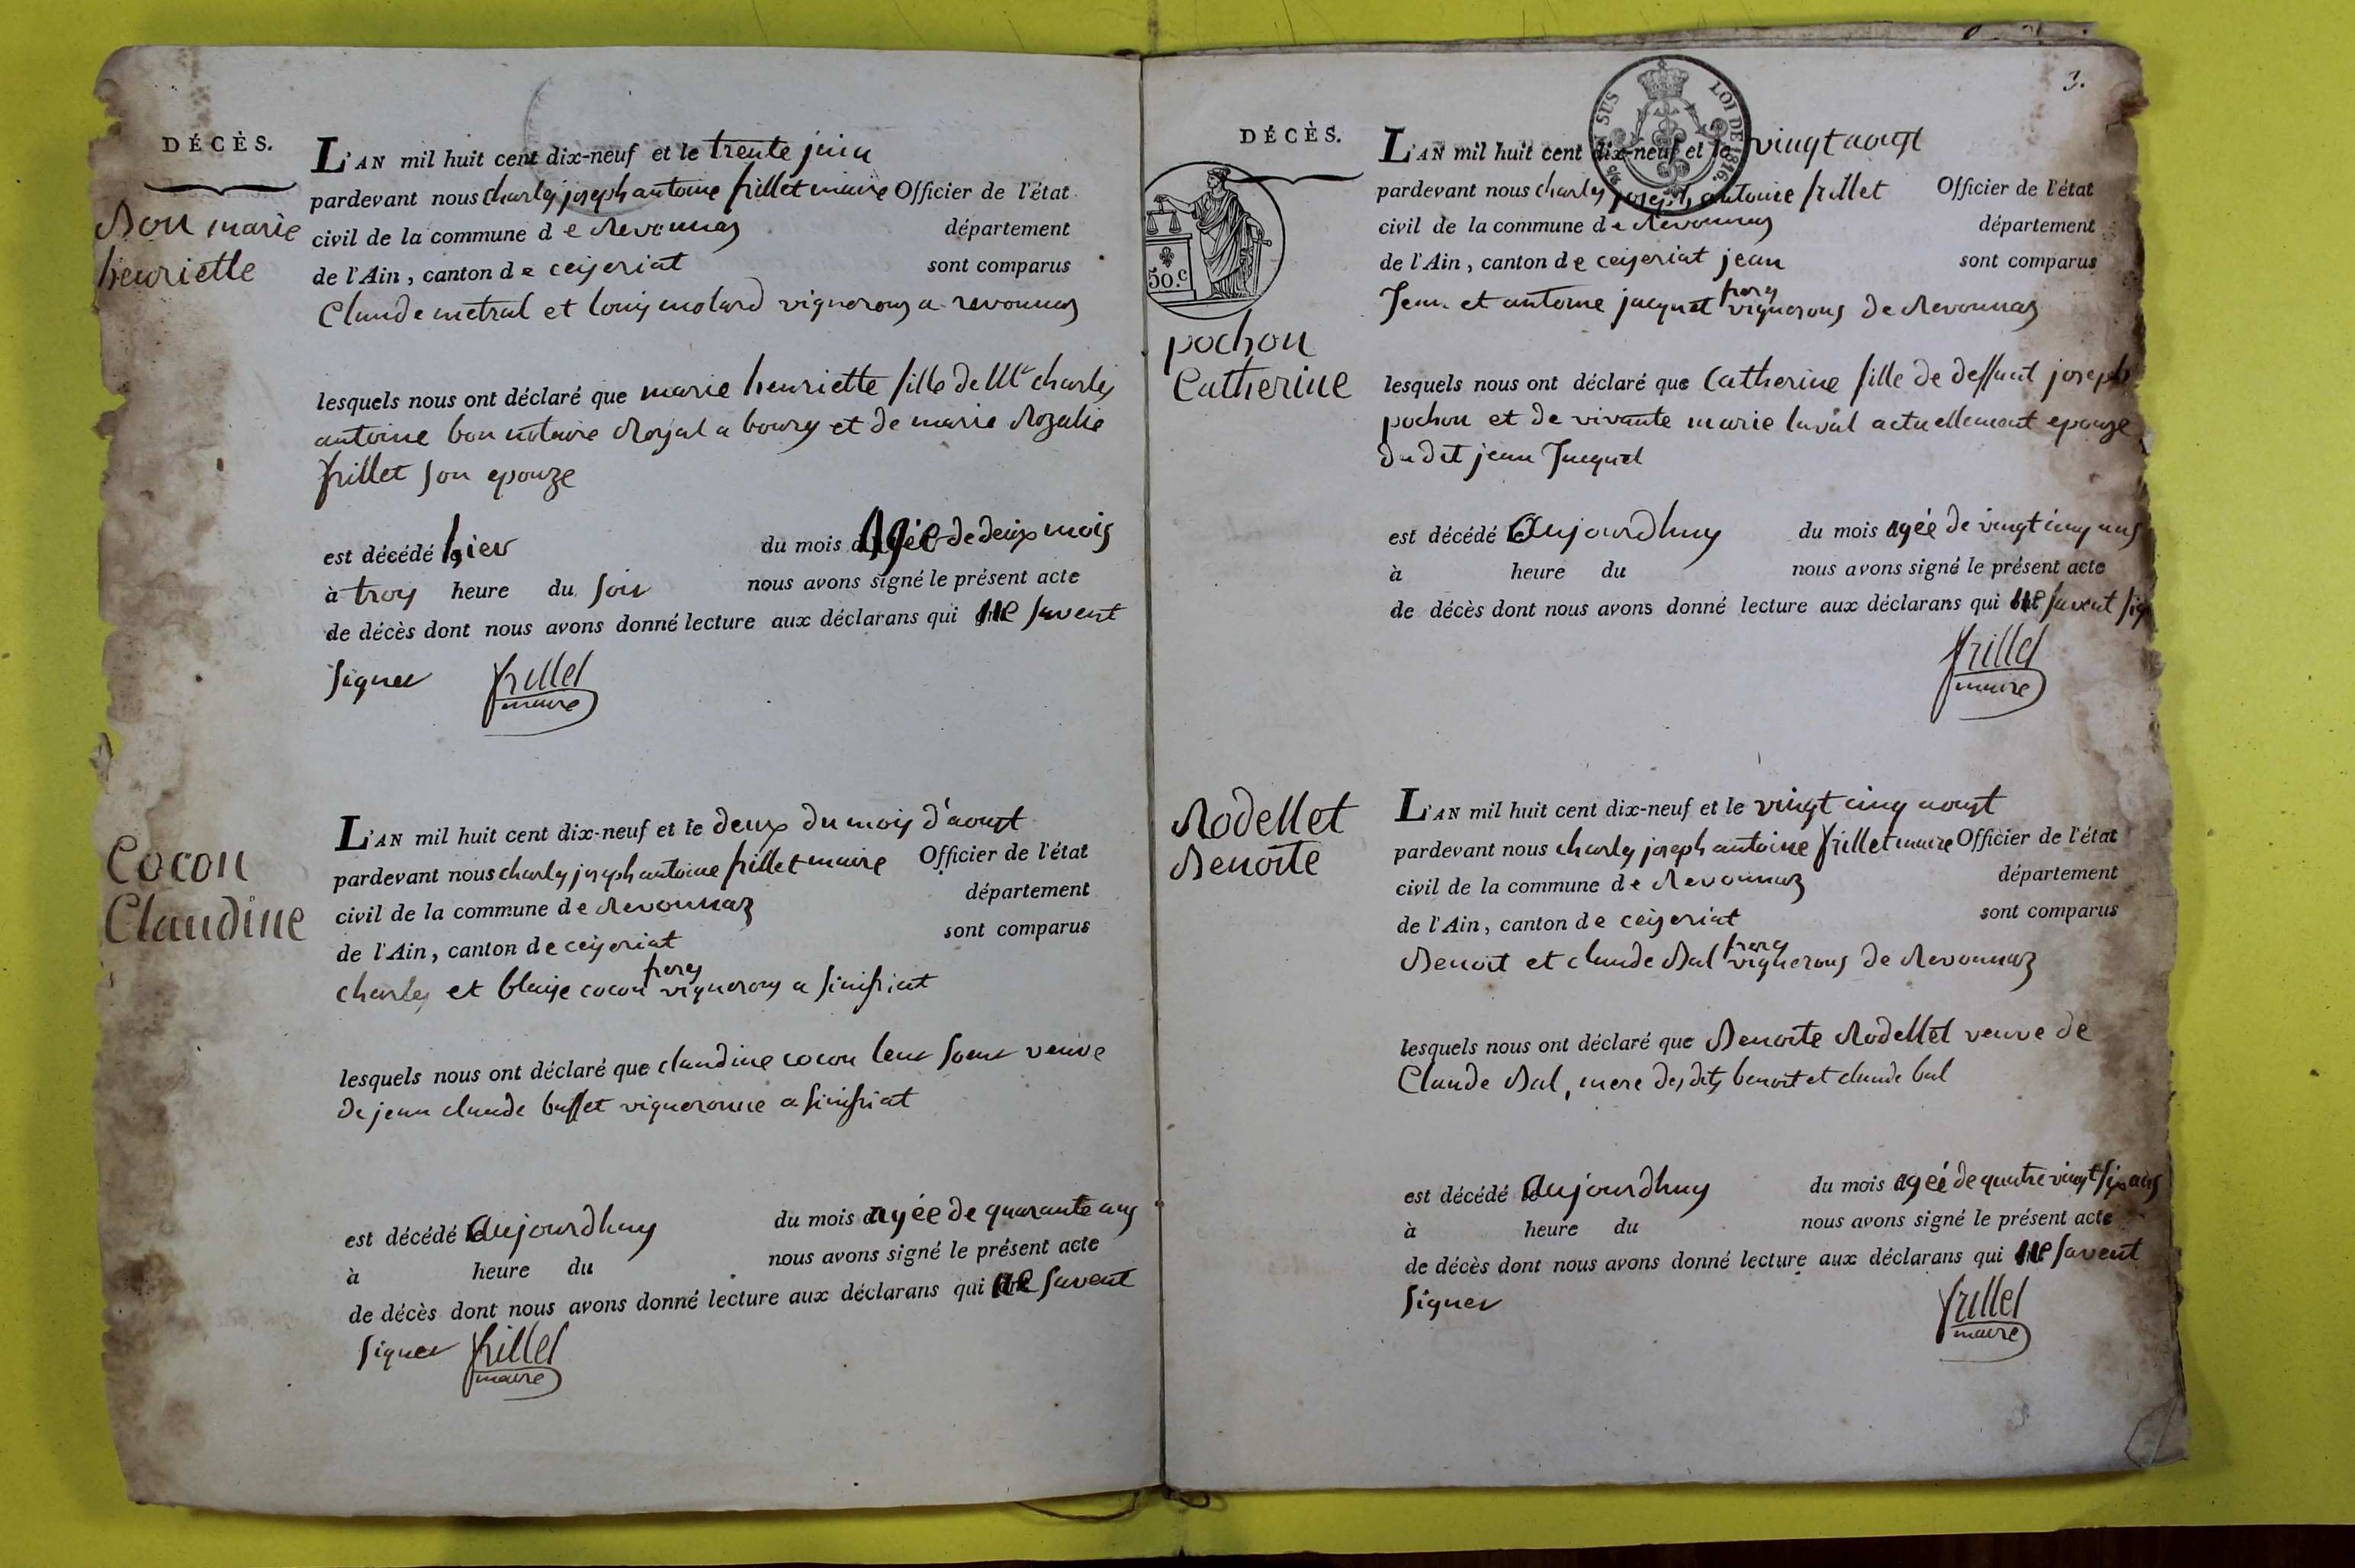 DÉCÈS.
Bon marie
henriette
L'AN mil huit cent dix-neuf et le trente juin
pardevant nous charles joseph antoine frillet maire Officier de l'état
civil de la commune de Revonnaz département
de l'Ain, canton de ceiseriat sont comparus
Claude metral et louis molard vignerons a revonnas
lesquels nous ont déclaré que marie henriette fille de Mr charles
antoine bon notaire Royal a bourg et de marie Rozalie
frillet son epouze
est décédé hier du mois Agée de deux mois
à trois heure du soir nous avons signé le présent acte
de décès dont nous avons donné lecture aux déclarans qui ne savent
signer frillet
maire
Cocon
Claudine
L'AN mil huit cent dix-neuf et le deux du mois d'aoust
pardevant nous charles joseph antoine frillet maire Officier de l'état
civil de la commune de Revonnaz département
de l'Ain, canton de ceiseriat sont comparus
charles et blaise cocon freres vignerons a sinsiriat
lesquels nous ont déclaré que claudine cocon leur soeur veuve
de jean claude buffet vigneronne a sinsiriat
est décédé aujourdhuy du mois agée de quarante ans
à heure du nous avons signé le présent acte
de décès dont nous avons donné lecture aux déclarans qui ne savent
signer frillet
maire
3.
DÉCÈS.
EN SUS LOI DE 1816.
50.c
pochon
Catherine
L'AN mil huit cent dix-neuf et le vingt aoust
pardevant nous charles joseph antoine frillet Officier de l'état
civil de la commune de Revonnas département
de l'Ain, canton de ceiseriat jean sont comparus
Jean et antoine jacquet freres vignerons de Revonnaz
lesquels nous ont déclaré que Catherine fille de deffunt joseph
pochon et de vivante marie laval actuellement epouze
du dit jean Jacquet
est décédé aujourdhuy du mois agée de vingt cinq ans
à heure du nous avons signé le présent acte
de décès dont nous avons donné lecture aux déclarans qui ne savent sig
frillet
maire
Rodellet
Benoite
L'AN mil huit cent dix-neuf et le vingt cinq aoust
pardevant nous charles joseph antoine frillet maire Officier de l'état
civil de la commune de Revonnaz département
de l'Ain, canton de ceiseriat sont comparus
Benoit et claude Bal freres vignerons de Revonnaz
lesquels nous ont déclaré que Benoite Rodellet veuve de
Claude Bal, mere des dits benoit et claude bal
est décédé aujourdhuy du mois agée de quatre vingt six ans
à heure du nous avons signé le présent acte
de décès dont nous avons donné lecture aux déclarans qui ne savent
signer
frillet
maire